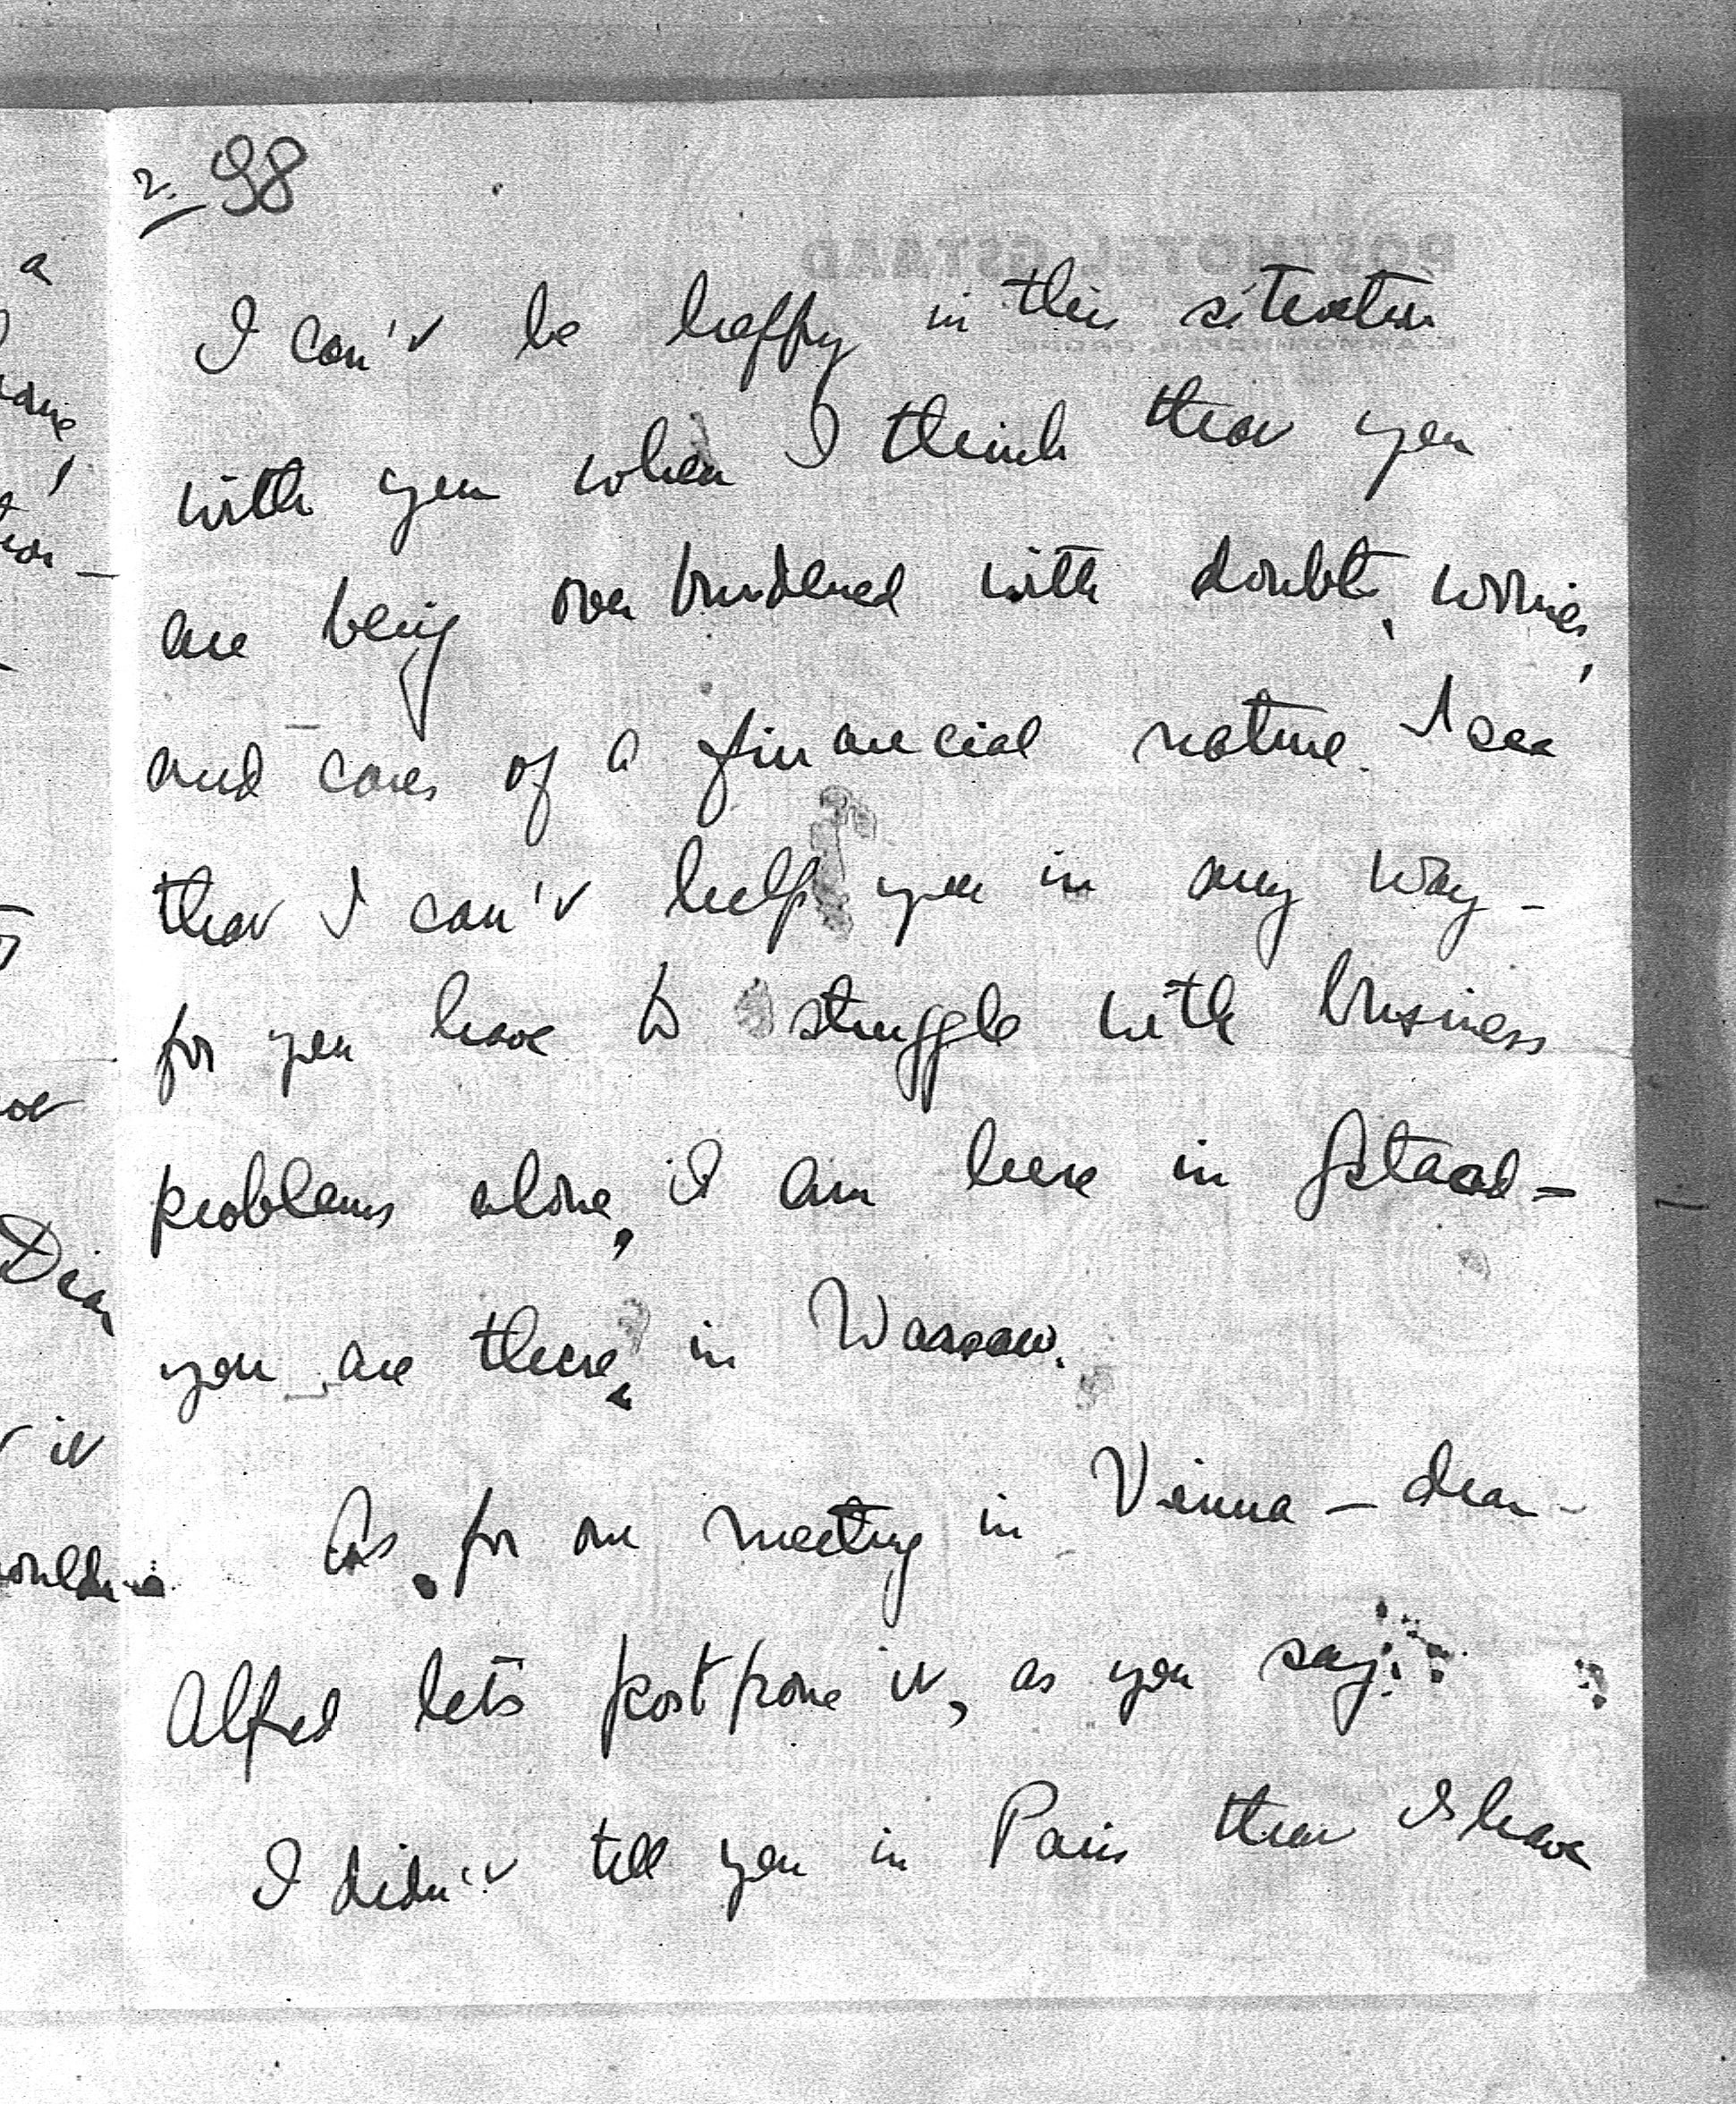 2. 98
I can't be happy in this situation
with you when I think that you
are being over burdened with doubt, worries,
and cares of a financial nature. I see
that I can't help you in any way -
for you have to struggle with business
problems alone, I am here in Gstaad -
you are there, in Warsaw.
As for our meeting in Vienna - dear -
Alfred let's postpone it, as you say.
I didn't tell you in Paris that I have
POSTHOTEL GSTAAD
a
Dear
it